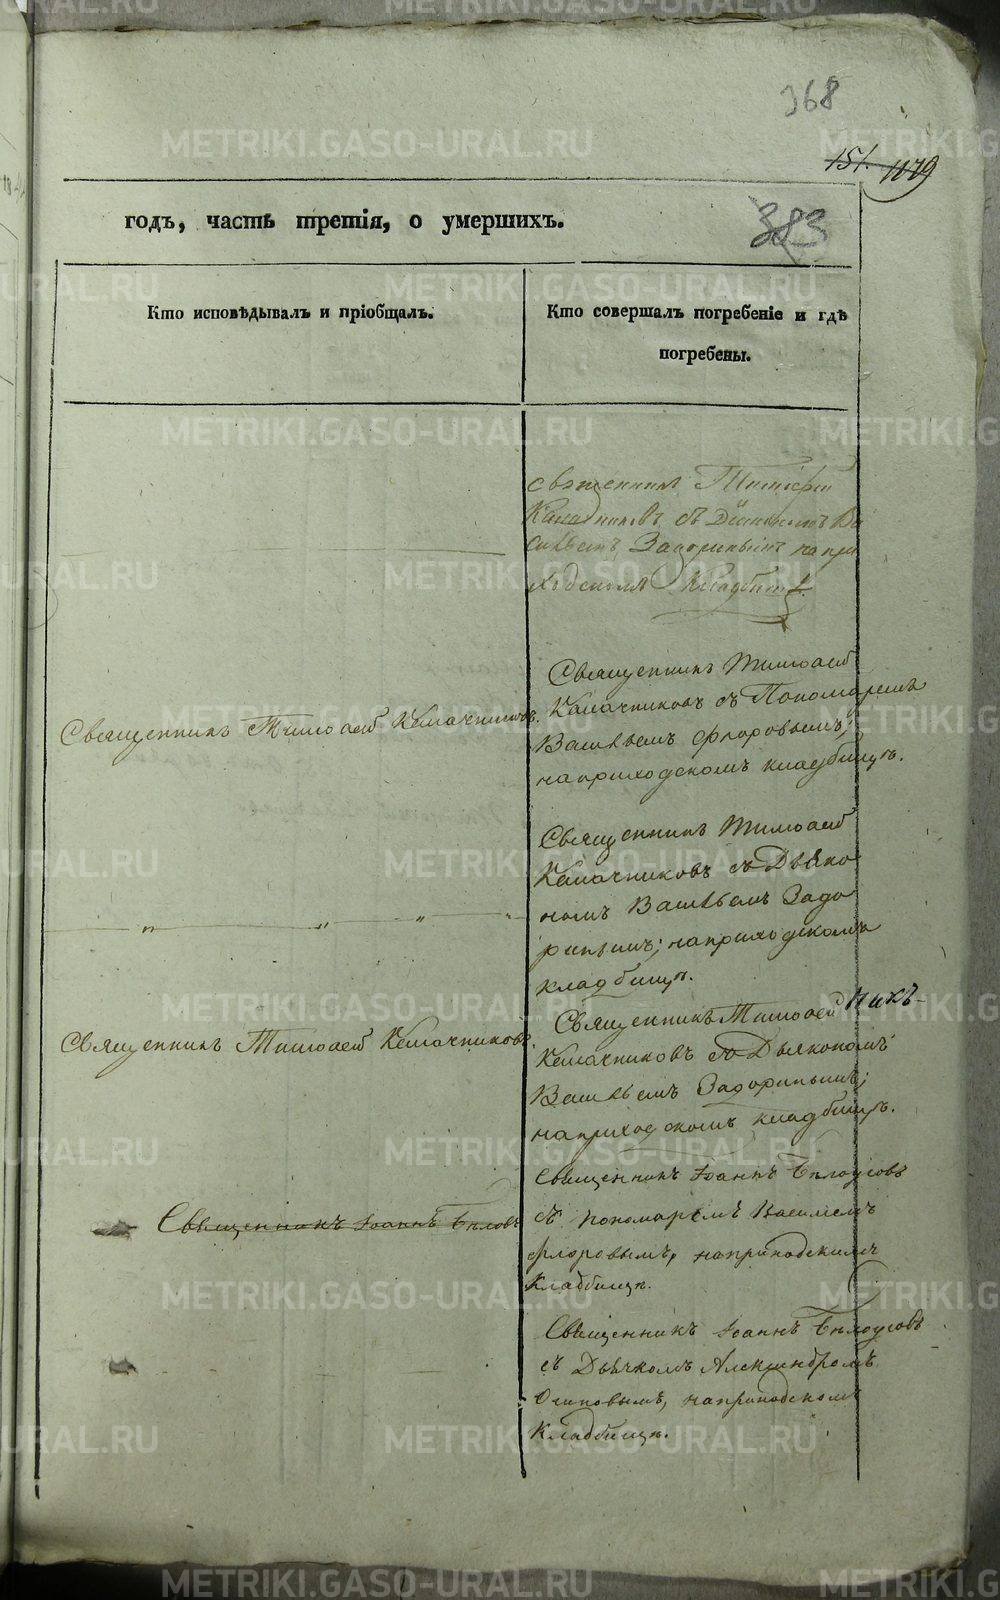 368
151. 1179
годъ, часть третія, о умершихъ.
383
Кто исповѣдывалъ и пріобщалъ.
Кто совершалъ погребеніе и гдѣ
погребены.
священникъ Тимоѳей
Калачниковъ съ Дьякономъ Ва
сильемъ Задоринымъ на при
ходскомъ кладбищѣ.
Священникъ Тимоѳей Калачниковъ.
Священникъ Тимоѳей
Калачниковъ съ Пономаремъ
Васильемъ Флоровымъ;
на приходскомъ кладбищѣ.
Священникъ Тимоѳей
Калачниковъ съ Дьяко
номъ Васильемъ Задо
ринымъ; на приходскомъ
кладбищѣ.
Священникъ Тимоѳей Калачниковъ.
Священникъ Тимоѳей
Калачниковъ съ Дьякономъ
Васильемъ Задоринымъ;
на приходскомъ кладбищѣ.
Священникъ Іоаннъ Бѣлоу
Священникъ Іоаннъ Бѣлоусовъ
съ пономаремъ Василіемъ
Флоровымъ, на приходскимъ
Кладбищѣ.
Священникъ Іоаннъ Бѣлоусовъ
съ Дьячкомъ Александромъ
Осиповымъ, на приходскомъ
Кладбищѣ.
METRIKI.GASO-URAL.RU